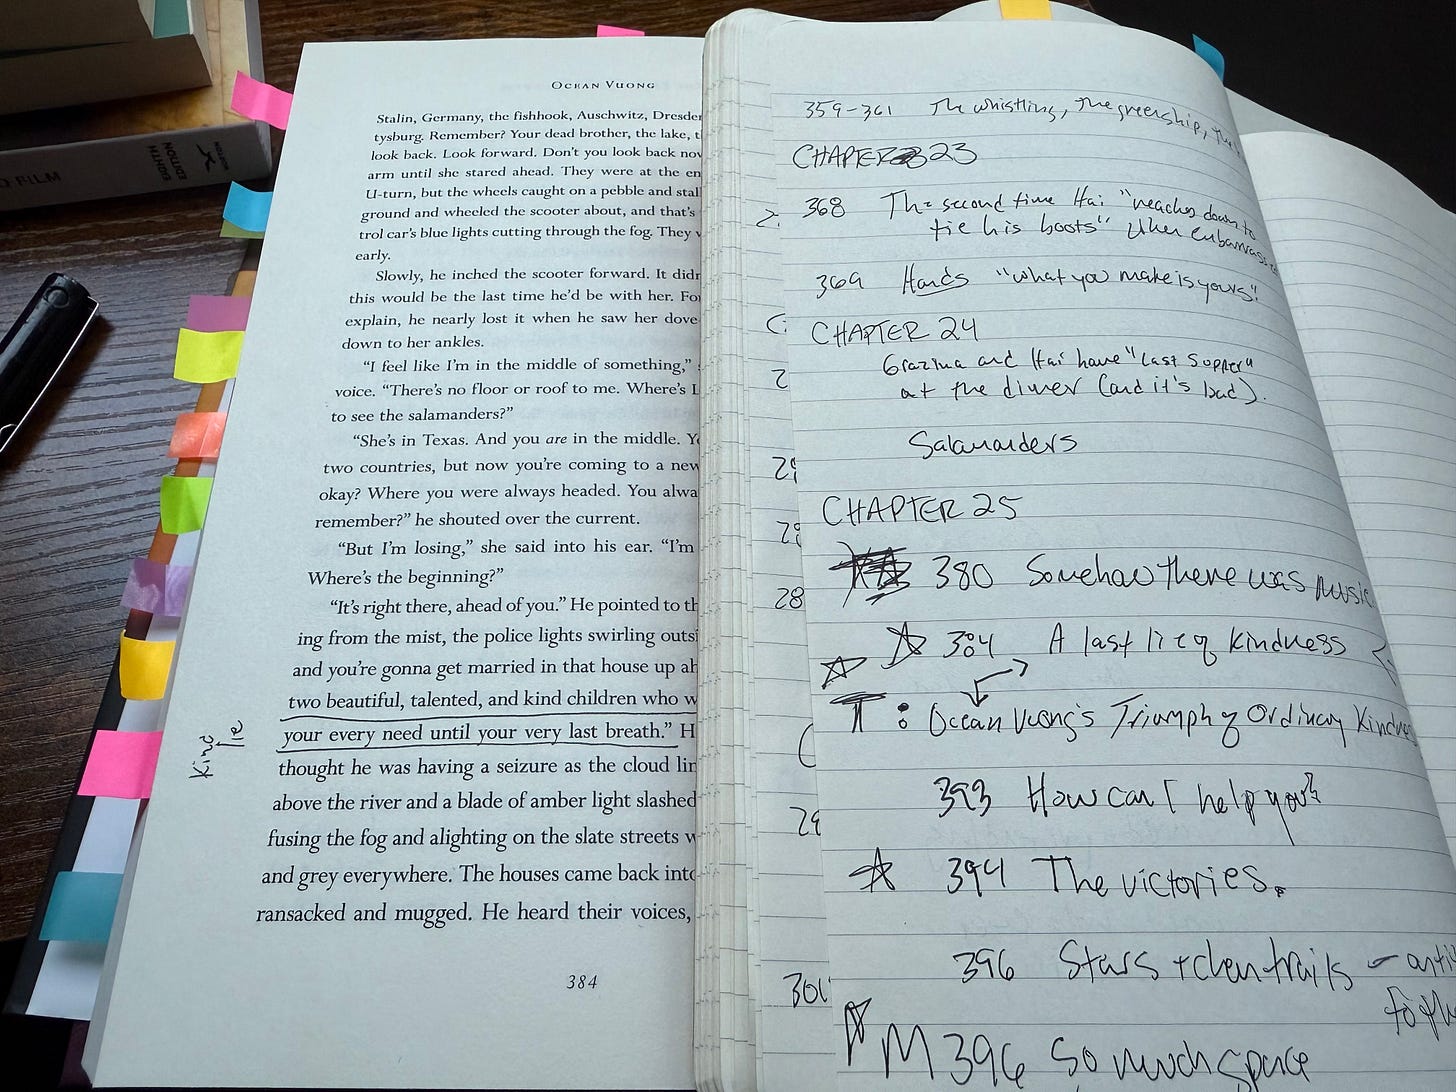 OCEAN VUONG
Stalin, Germany, the fishhook, Auschwitz, Dresde
tysburg. Remember? Your dead brother, the lake, t
look back. Look forward. Don't you look back nov
arm until she stared ahead. They were at the en
U-turn, but the wheels caught on a pebble and stal
ground and wheeled the scooter about, and that's
trol car's blue lights cutting through the fog. They
early.
Slowly, he inched the scooter forward. It didn
this would be the last time he'd be with her. For
explain, he nearly lost it when he saw her dove
down to her ankles.
"I feel like I'm in the middle of something,"
voice. "There's no floor or roof to me. Where's L
to see the salamanders?"
"She's in Texas. And you are in the middle. Yo
two countries, but now you're coming to a new
okay? Where you were always headed. You alwa
remember?" he shouted over the current.
"But I'm losing," she said into his ear. "I'm
Where's the beginning?"
"It's right there, ahead of you." He pointed to th
ing from the mist, the police lights swirling outsi
and you're gonna get married in that house up ah
two beautiful, talented, and kind children who w
your every need until your very last breath." H
thought he was having a seizure as the cloud lin
above the river and a blade of amber light slashed
fusing the fog and alighting on the slate streets w
and grey everywhere. The houses came back into
ransacked and mugged. He heard their voices,
384
kind
lie
FILM
EIGHTH
EDITION
NORTON
359-361 The whistling, the greenship, the
CHAPTER 23
368 The second time Hai "reaches down to
tie his boots" when embarrass
369 Hands "what you make is yours"
CHAPTER 24
Grazina and Hai have "Last Supper"
at the diner (and it's bad).
Salamanders
CHAPTER 25
380 Somehow there was music
384 A last lie of kindness
T: Ocean Vuong's Triumph of Ordinary Kindness
393 How can I help you?
394 The victories.
396 Stars + chemtrails - anti
M 396 So much space
28
301